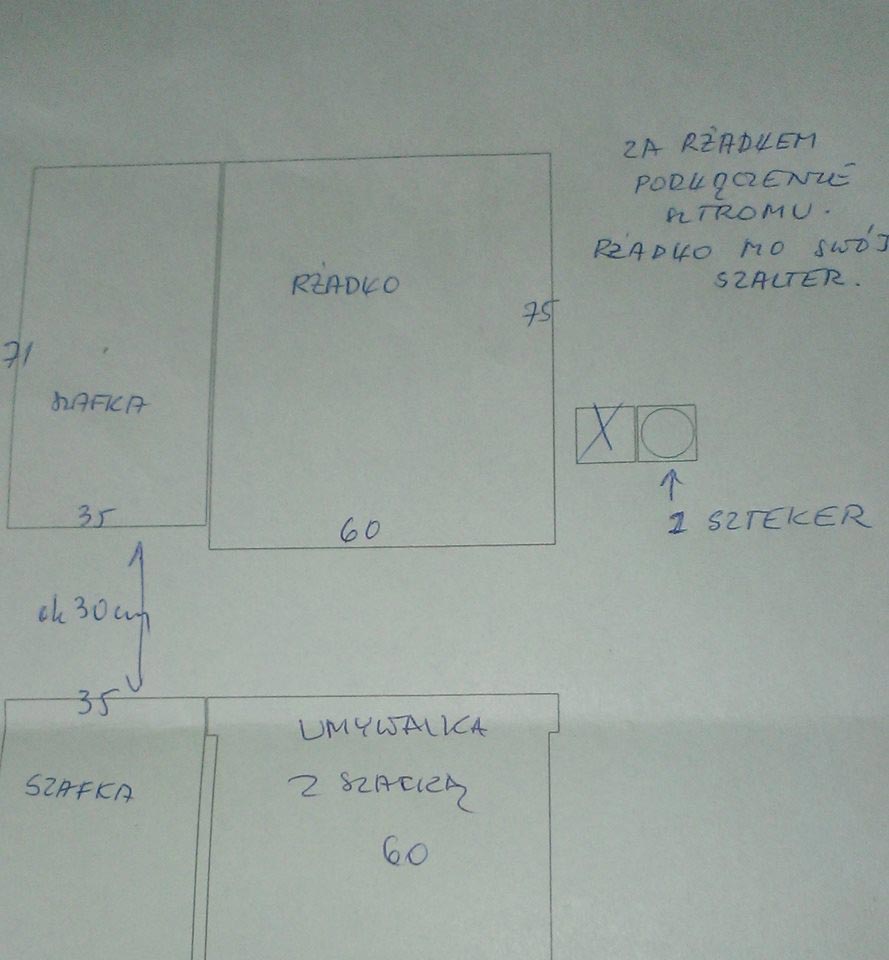 ZA RŻADKEM
PODŁĄCZENIE
SZTROMU.
RŻADKO MO SWÓJ
SZALTER.
RŻADKO
75
71
SZAFKA
35
60
X
1 SZTEKER
ok 30 cm
35
UMYWALKA
Z SZAFKĄ
SZAFKA
60